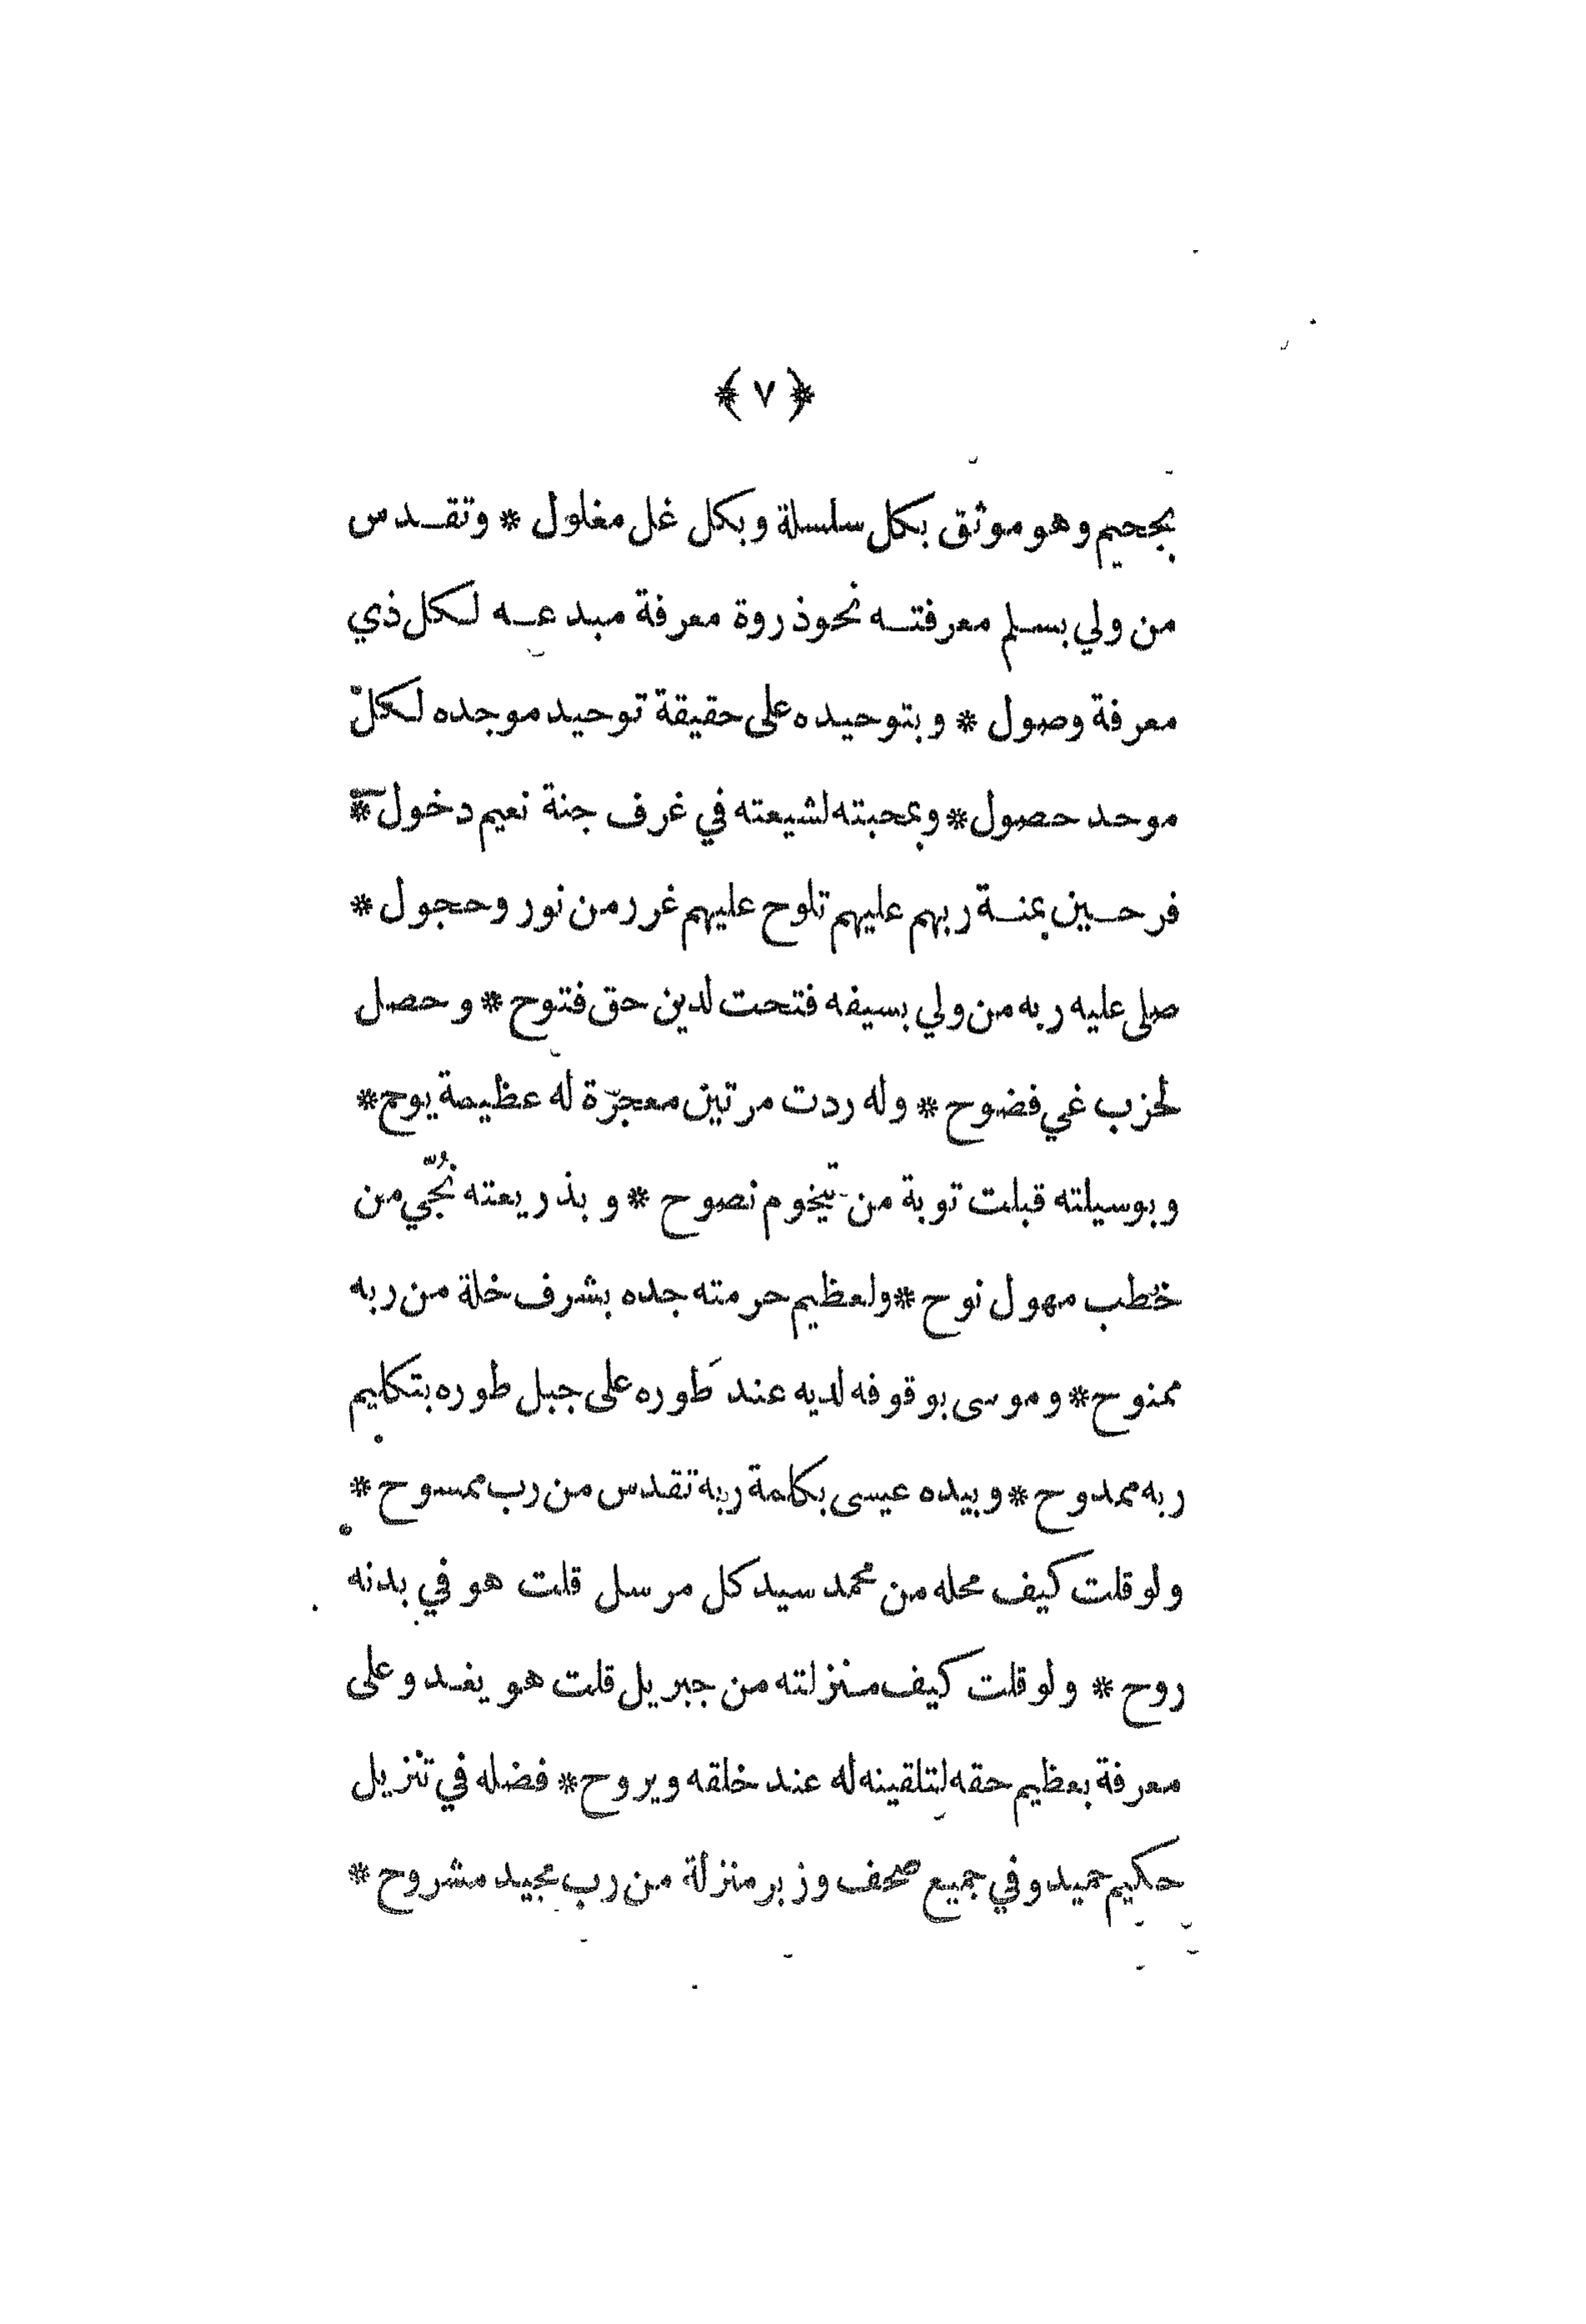 ﴿ ٧ ﴾
بجحيم وهو موثق بكل سلسلة وبكل غل مغلول * وتقدس
من ولي بسلم معرفته نحو ذروة معرفة مبدعه لكل ذي
معرفة وصول * وبتوحيده على حقيقة توحيد موجده لكل
موحد حصول * وبمحبته لشيعته في غرف جنة نعيم دخول *
فرحين بمنة ربهم عليهم تلوح عليهم غرر من نور وحجول *
صلى عليه ربه من ولي بسيفه فتحت لدين حق فتوح * وحصل
لحزب غي فضوح * وله ردت مرتين معجزة له عظيمة يوح *
وبوسيلته قبلت توبة من نصوح * وبذريعته نُجّي من
خطب مهول نوح * ولعظيم حرمته جده بشرف خلة من ربه
ممنوح * وموسى بوقوفه لديه عند طَوره على جبل طوره بتكليم
ربه ممدوح * وبيده عيسى بكلمة ربه تقدس من رب ممسوح *
ولو قلت كيف محله من محمد سيد كل مرسل قلت هو في بدنه
روح * ولو قلت كيف منزلته من جبريل قلت هو يغدو على
معرفة بعظيم حقه لتلقينه له عند خلقه ويروح * فضله في تنزيل
حكيم حميد وفي جميع صحف وزبر منزلة من رب مجيد مشروح *